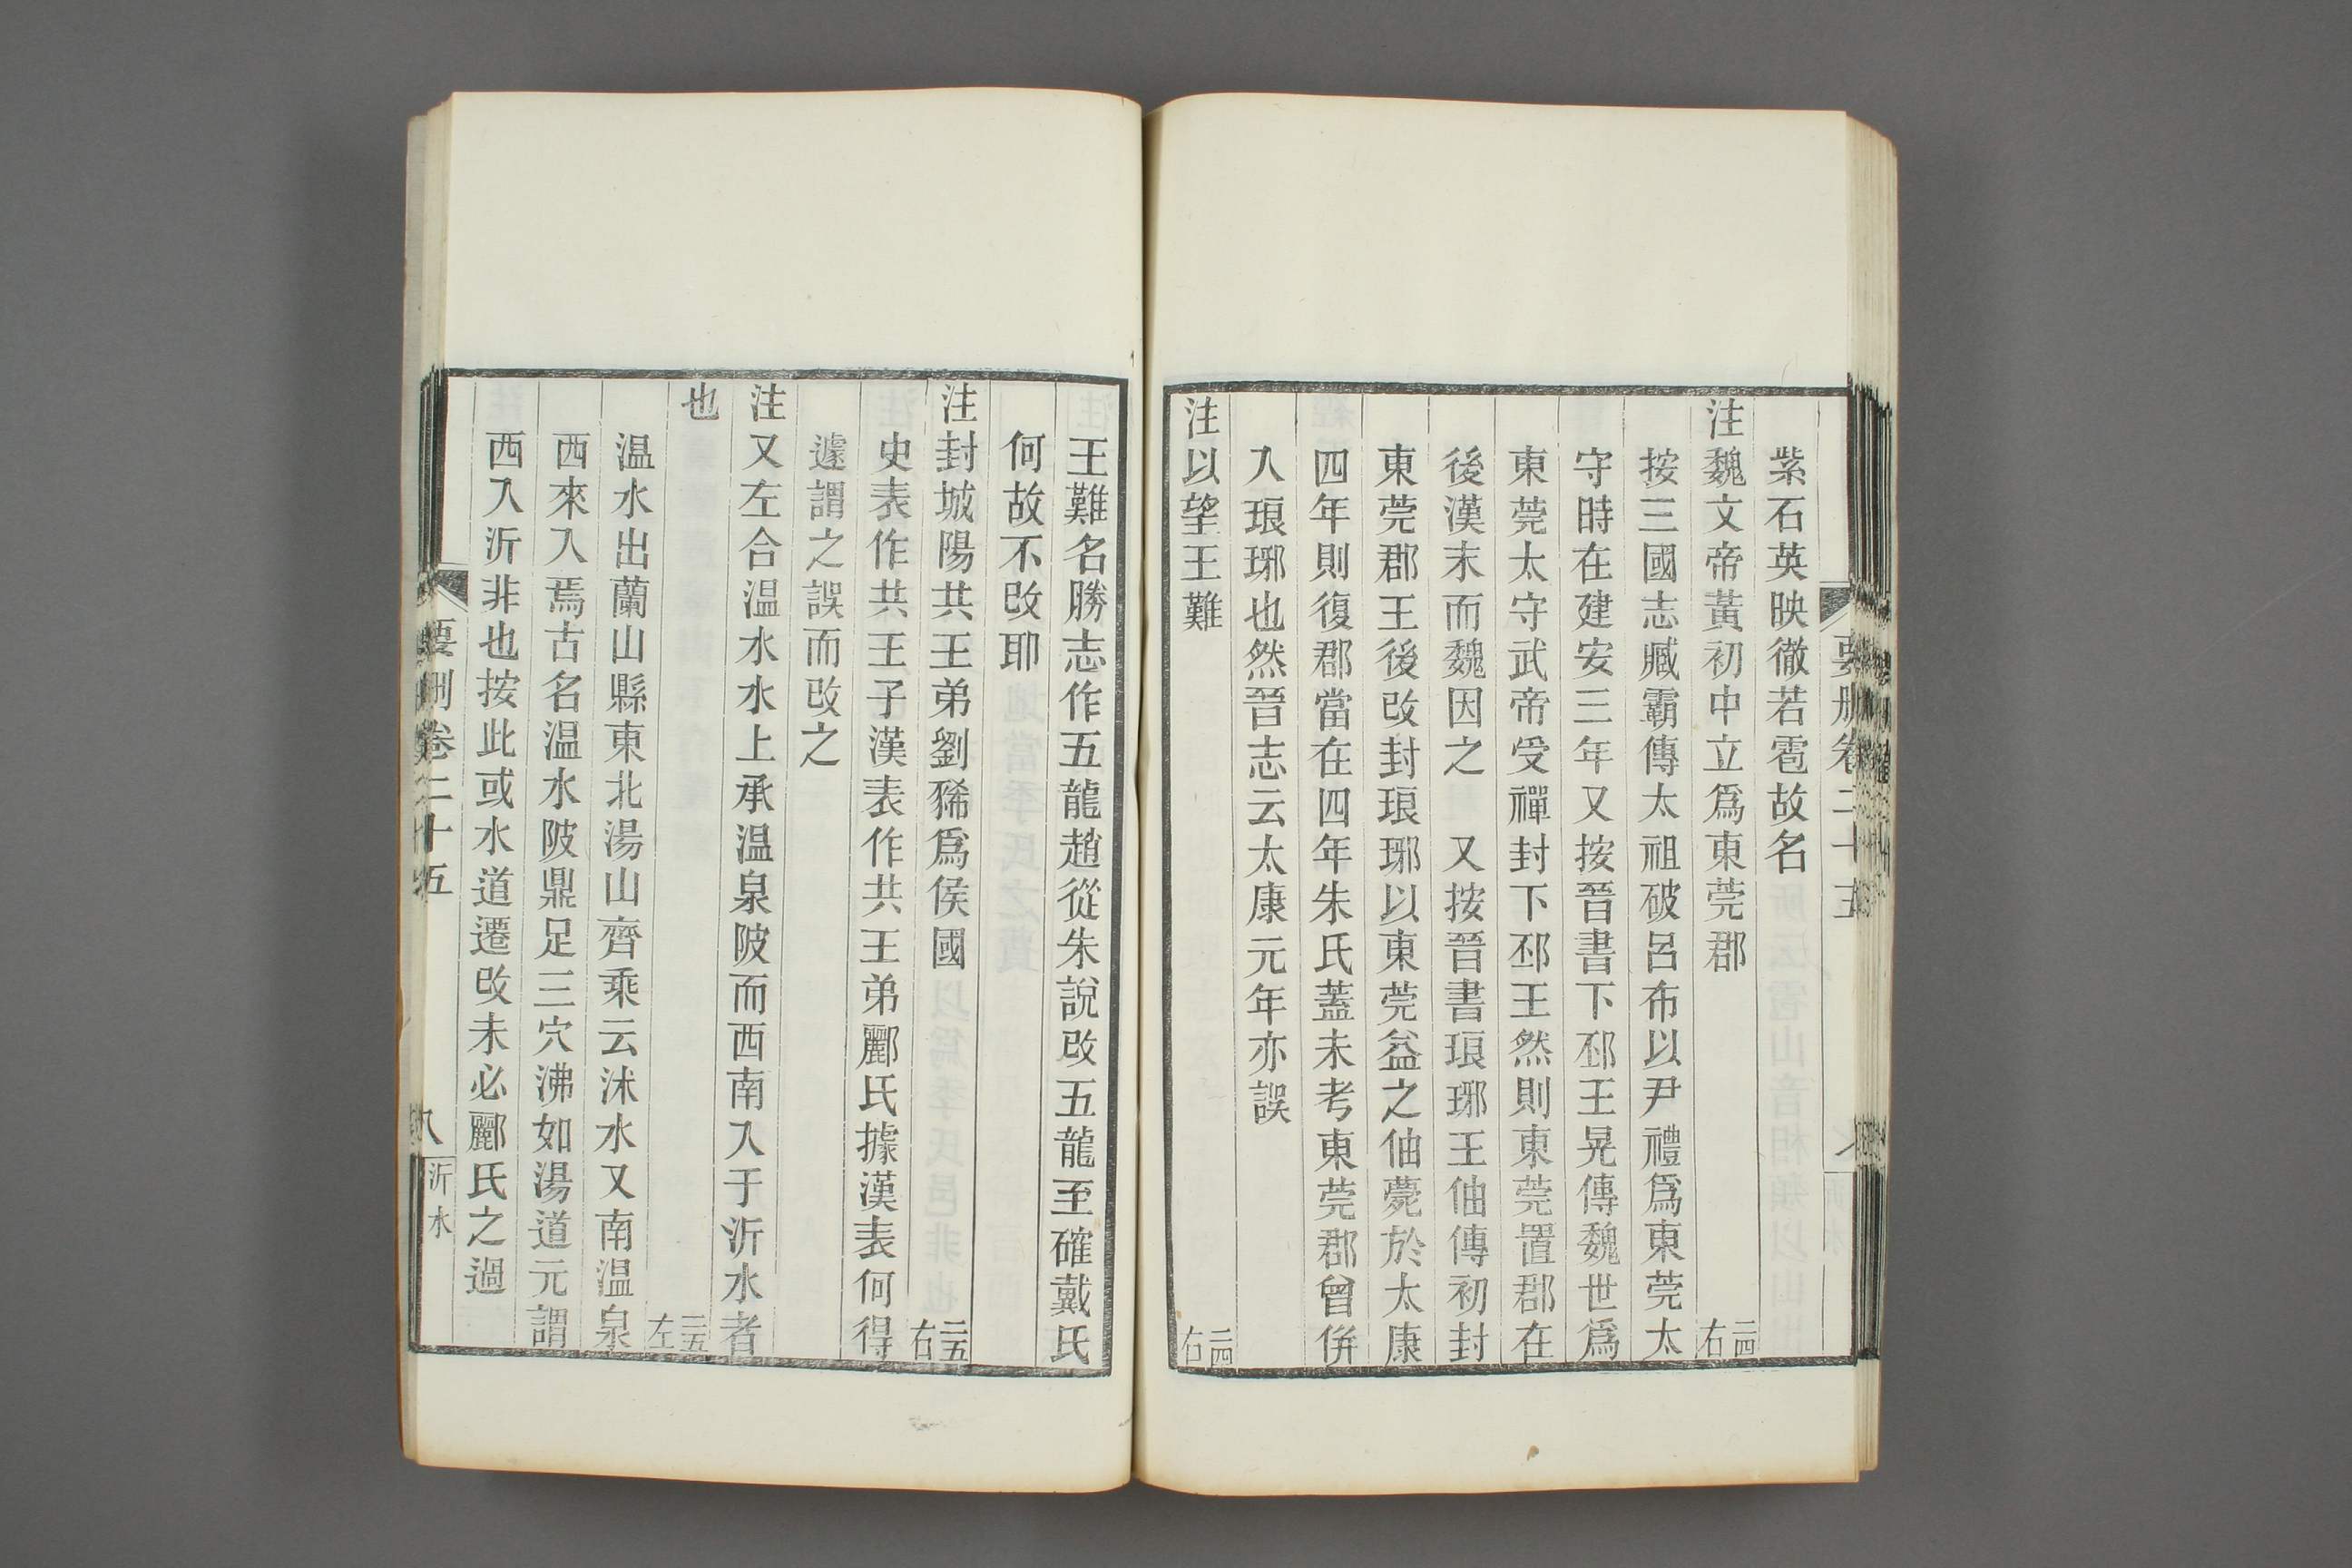 要刪卷二十五
紫石英映徹若雹故名
注魏文帝黃初中立爲東莞郡 二四右
按三國志臧霸傳太祖破呂布以尹禮爲東莞太
守時在建安三年又按晉書下邳王晃傳魏世爲
東莞太守武帝受禪封下邳王然則東莞置郡在
後漢末而魏因之 又按晉書琅琊王伷傳初封
東莞郡王後改封琅琊以東莞益之伷薨於太康
四年則復郡當在四年朱氏蓋未考東莞郡曾倂
入琅琊也然晉志云太康元年亦誤
注以望王難 二四右
王難名勝志作五龍趙從朱說改五龍至確戴氏
何故不改耶
注封城陽共王弟劉狶爲侯國 二五右
史表作共王子漢表作共王弟酈氏據漢表何得
遽謂之誤而改之
注又左合温水水上承温泉陂而西南入于沂水者
也 二五左
温水出蘭山縣東北湯山齊乘云沭水又南温泉
西來入焉古名温水陂鼎足三穴沸如湯道元謂
西入沂非也按此或水道遷改未必酈氏之過
要刪卷二十五 八 沂水